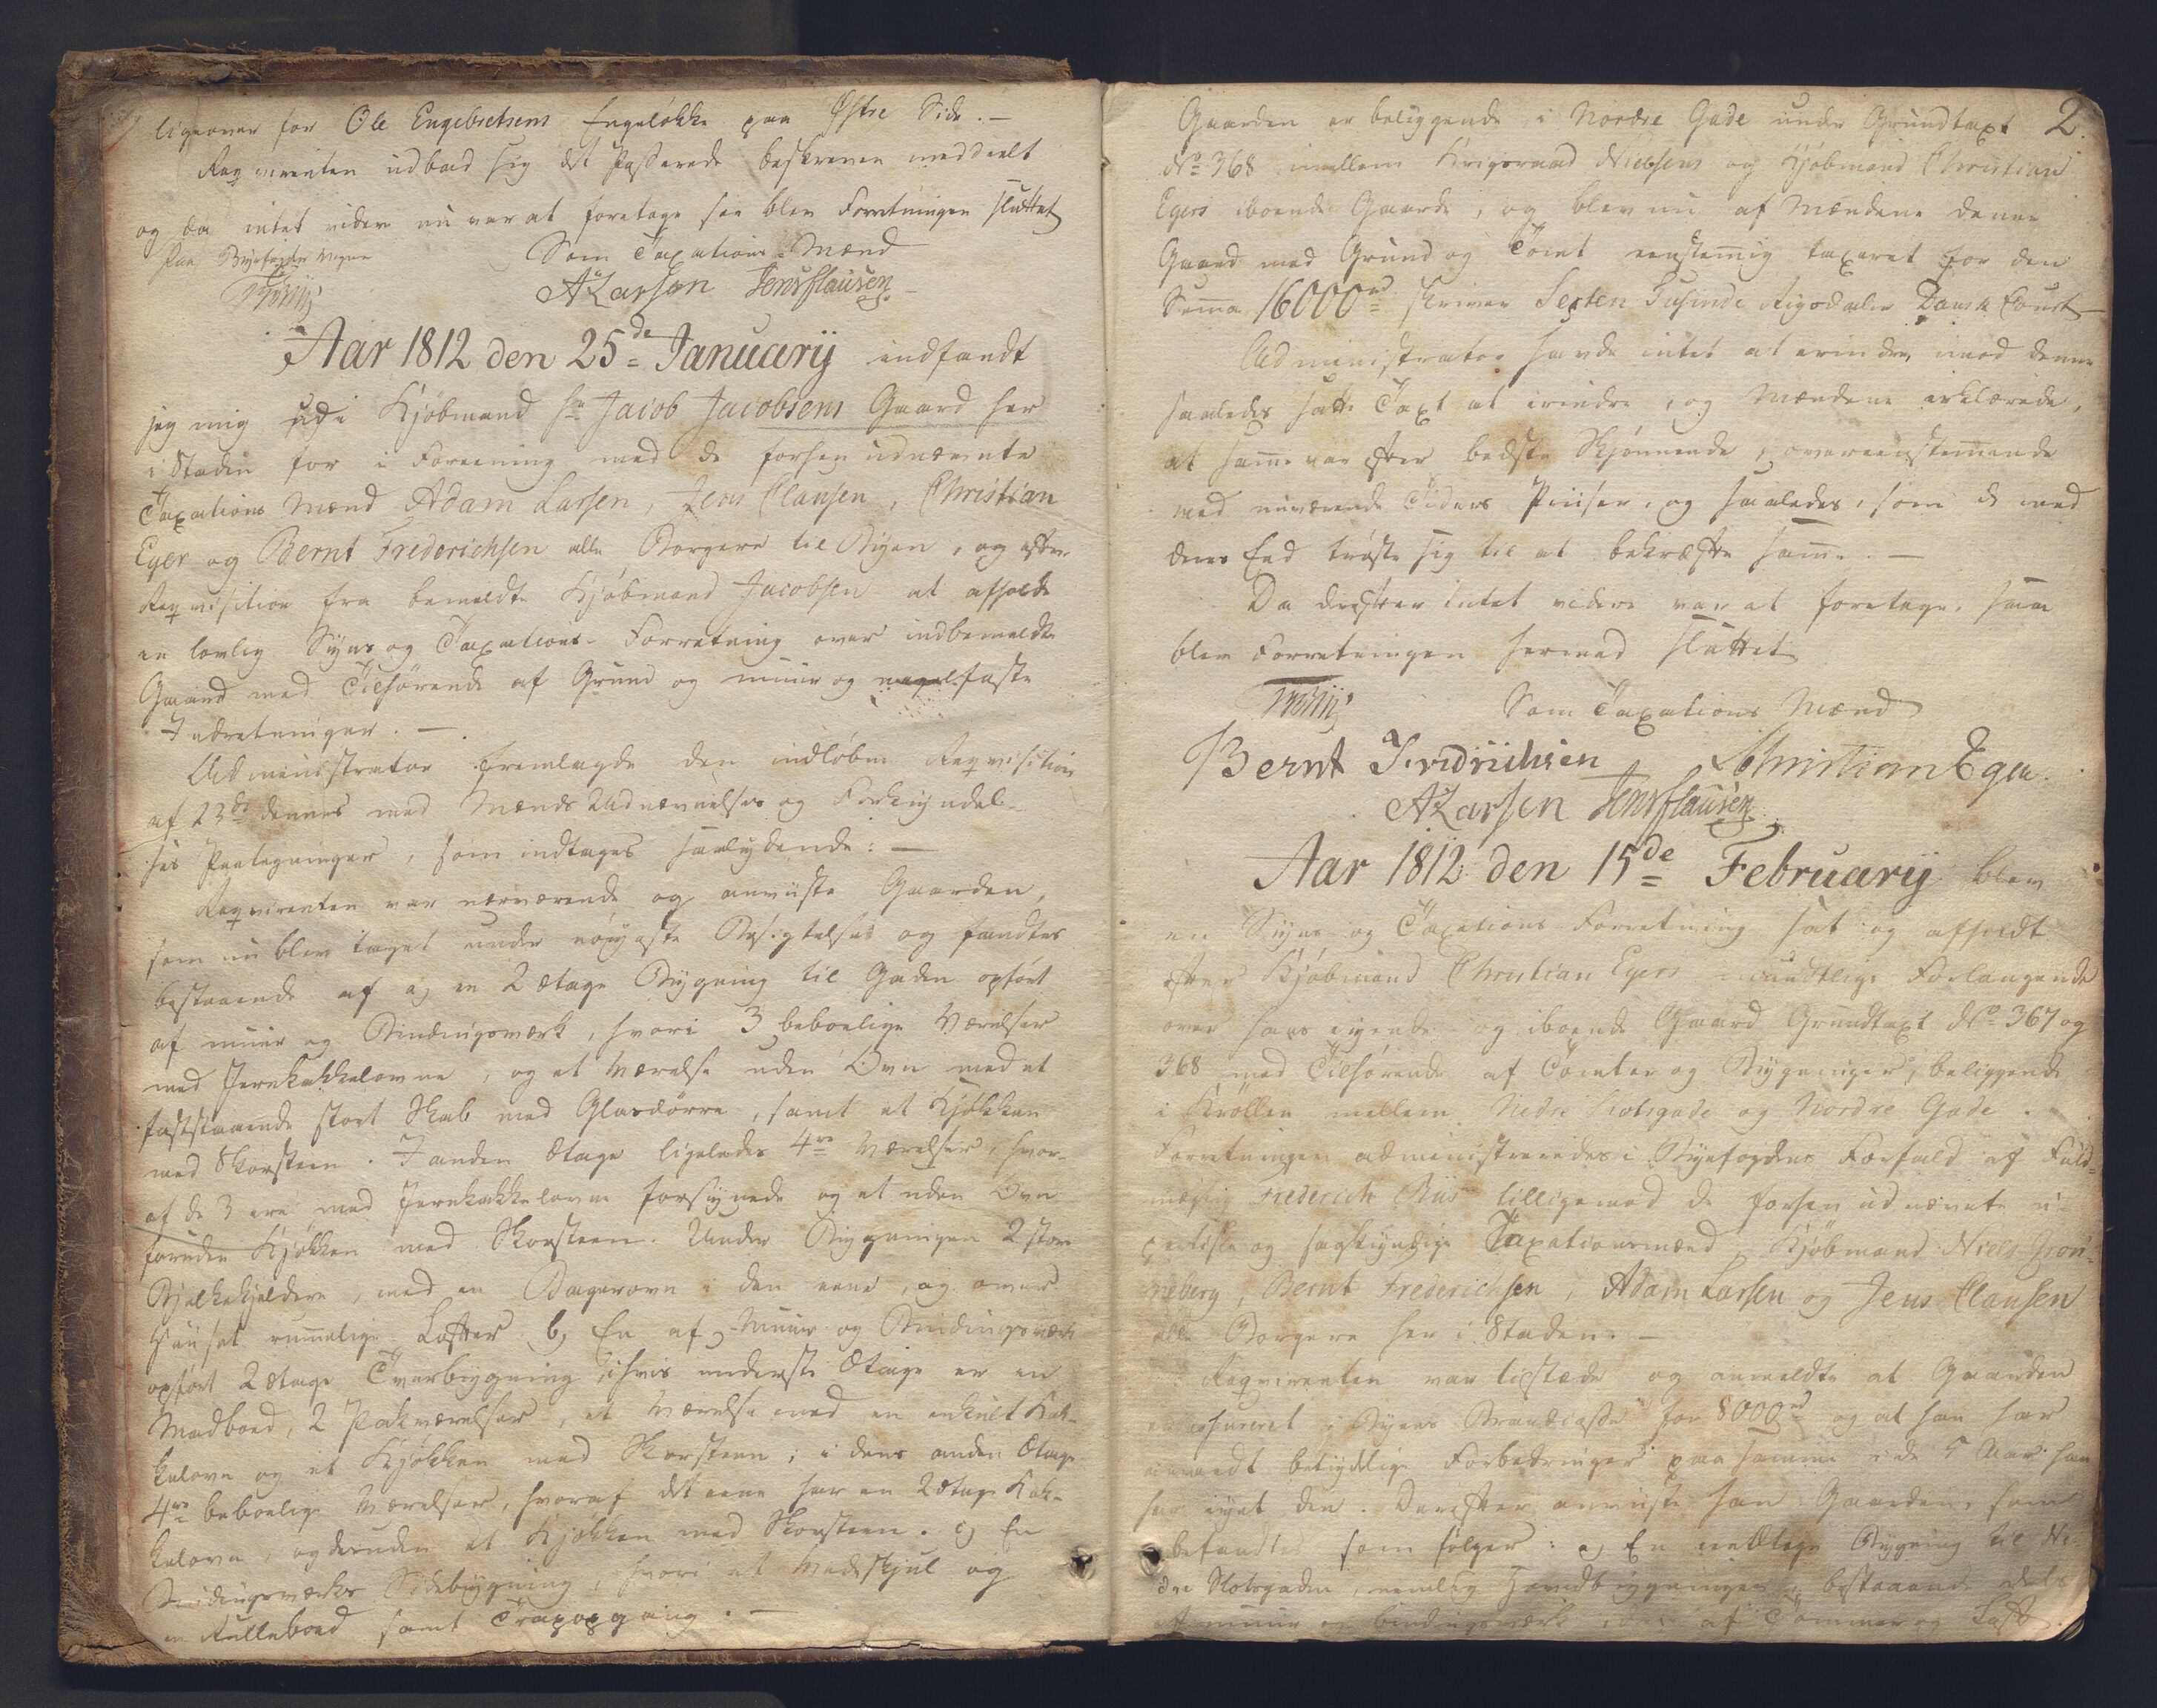 ligeover for Ole Engebretsens Engeløkke paa Østre Side. —
Reqvirenten udbad sig det Passerede beskreven meddeelt
og da intet videre nu var at foretage saa blev Forretningen sluttet
Paa Byefogdens vegne Som Taxations-Mænd
ALarsen Jens Clausen
Aar 1812 den 25de Januarij indfandt
jeg mig udi Kjøbmand Hr Jacob Jacobsens Gaard her
i Staden for i Foreening med de forhen udnævnte
Taxations Mænd Adam Larsen, Jens Clausen, Christian
Eger og Bernt Frederichsen alle Borgere til Byen, og efter
Reqvisition fra bemeldte Kjøbmand Jacobsen at afholde
en lovlig Syns og Taxations-Forretning over indbemeldte
Gaard med Tilhørende af Grund og muur og nagelfaste
Indretninger. —
Administrator fremlagde den indløbne Reqvisition
af 23de dennes med Mænds Udnævnelses og Forkyndel-
ses Paategninger, som indtages saalydende: —
Reqvirenten var nærværende og anviiste Gaarden,
som nu blev taget under nøyeste Besigtelse og fandtes
bestaaende af a, en 2 Etage Bygning til Gaden opført
af muur og Bindingsværk, hvori 3 beboelige Værelser
med Jernkakkelovne, og et Værelse uden Ovn med et
faststaaende stort Skab med Glasdørre, samt et Kjøkken
med Skorsteen. I anden Etage ligeledes 4re Værelser, hvor-
af de 3 ere med Jernkakkelovne forsynede og et uden Ovn
foruden Kjøkken med Skorsteen. Under Bygningen 2 store
Bjelkekjeldere, med en Bagerovn i den eene, og over
Huuset rummelige Lofter b, En af Muur og Bindingsværk
opført 2 Etage Tverbygning i hvis underste Etage er en
Madboed, 2 Pakværelser, et Værelse med en enkelt Kak-
kelovn og et Kjøkken med Skorsteen; i dens anden Etage
4re beboelige Værelser, hvoraf det eene har en 2 Etage Kak-
kelovn, og desuden et Kjøkken med Skorsteen. c, En
Bindingsværks Sidebygning, hvori et Vedskjul og
en Rulleboed samt Trapopgang. —
2.
Gaarden er beliggende i Nordre Gade under Grundtaxt
No 368 imellem Krigsraad Nielsens og Kjøbmand Christian
Egers iboende Gaarde, og blev nu af Mændene denne
Gaard med Grund og Tomt eenstemig taxeret for den
Summa 16000rd skriver Sexten Tusinde Rigsdaler Dansk Court
Administrator havde intet at erindre imod denne
saaledes satte Taxt at erindre, og Mændene erklærede,
at samme var efter bedste Skjønnende, overeenstemmende
med nuværende Tiders Priiser, og saaledes, som de med
deres Eed trøste sig til at bekræfte samme. —
Da derefter intet videre var at foretage, saa
blev Forretningen hermed sluttet
Som Taxations Mænd
Bernt Fridrichsen Christian Eger
ALarsen Jens Clausen
Aar 1812 den 15de Februarij blev
en Syns og Taxations Forretning sat og afholdt
efter Kjøbmand Christian Egers mundtlige Forlangende
over hans eyende og iboende Gaard Grundtaxt No 367 og
368 med Tilhørende af Tomter og Bygninger, beliggende
i Krøllen mellem Nedre Slotsgade og Nordre Gade.
Forretningen administreredes i Byefogdens Forfald af Fuld-
mægtig Frederich Riis tilligemed de forhen udnævnte u-
partiske og sagkyndige Taxationsmænd, Kjøbmand Niels Gron-
neberg, Bernt Frederichsen, Adam Larsen og Jens Clausen
alle Borgere her i Staden. —
Reqvirenten var tilstæde og anmeldte at Gaarden
er assureret i Byens Brandcasse for 8000rd og at han har
anvendt betydelige Forbedringer paa samme i de 5 Aar han
har eyet den. Derefter anviiste han Gaarden, som
befandtes som følger: a, En eenetages Bygning til Ne-
dre Slotsgaden, nemlig bestaaende deels
af muur og bindingsværk, af Tømmer og Loft